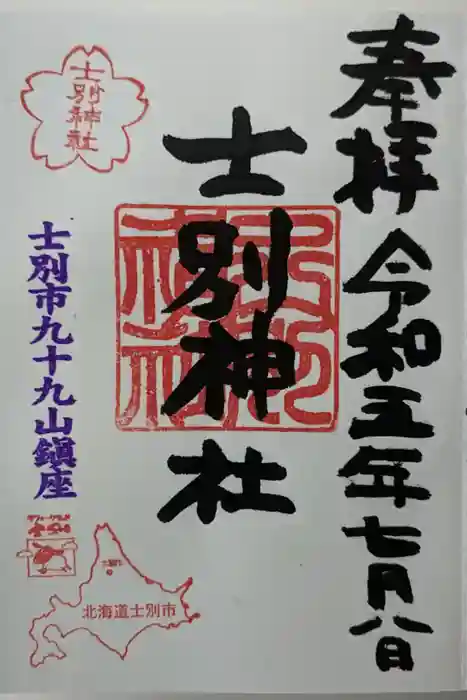 奉拝
令和五年七月八日
士別神社
士別神社
士別市九十九山鎮座
北海道士別市